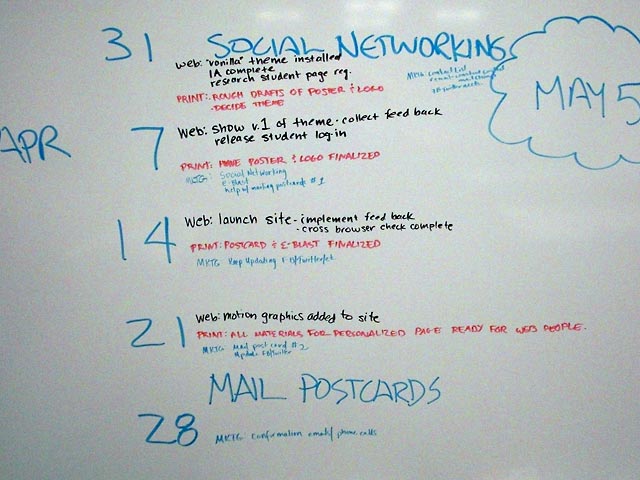 31 SOCIAL NETWORKING
Web: "vanilla" theme installed
IA complete
research student page reg.
PRINT: ROUGH DRAFTS OF POSTER & LOGO
-DECIDE THEME
MKTG contact list
MAY 5
APR
7 Web: show v.1 of theme - collect feed back
release student log-in
PRINT: POSTER & LOGO FINALIZED
MKTG: Social Networking
E-Blast
help w/ mailing postcards #1
14 Web: launch site - implement feed back
- cross browser check complete
PRINT: POSTCARD & E-BLAST FINALIZED
MKTG Keep updating FB/Twitter/etc.
21 Web: motion graphics added to site
PRINT: ALL MATERIALS FOR PERSONALIZED PAGE READY FOR WEB PEOPLE.
MKTG mail post card #2
update FB/twitter
MAIL POSTCARDS
28 MKTG confirmation email/ phone calls